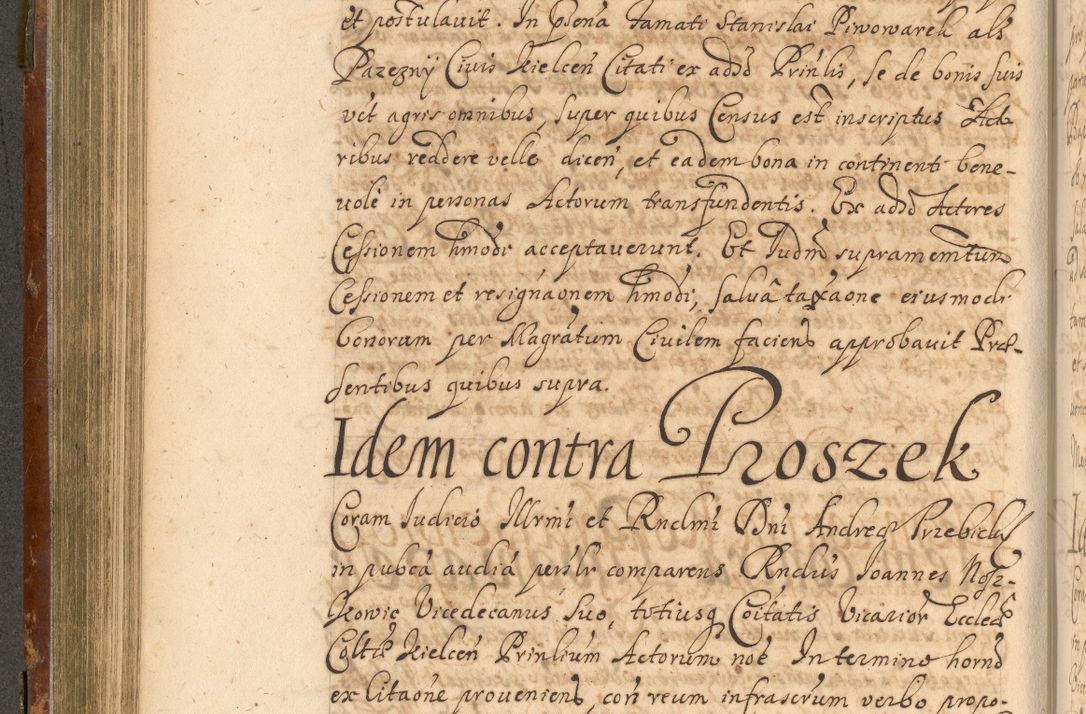 et postulavit. In pñna Famati Stanislai Piwowarek als
Parezny Civis Kielceñ Citati ex addõ Prinlis, se de bonis suis
vct agris omnibus, super quibus Census est inscriptus Acto
ribus reddere velle diceñ, et eadem bona in continenti bene-
vole in personas Actorum transfundentis. Ex addõ Actores
Cessionem hmõdi acceptaverunt. Et Iudm̃ supramemtum
Cessionem et resignaõnem hmõdi, salvâ taxaõne eiusmodi
bonorum per Magrãtum Civilem faciens approbavit Præ-
sentibus quibus supra.
Idem contra Proszek
Coram Iudicio Illrmi et Rndmi Dñi Andreę Przebicki
in pubcâ audiâ persłr comparens Rndus Ioannes
kowic Vicedecanus suo, totiusq Cõitatis Vicarior Eccleæ
Coltæ Kielceñ Prinlium Actorum noê In termino hornõ
ex Citaõne proveniens, coñ reum infrascrum verbo propo-